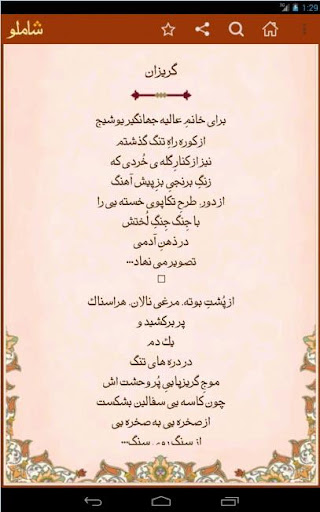 1:29
شاملو
گریزان
برای خانم عالیه جهانگیر یوشیج
از کوره راه تنگ گذشتم
نیز از کنار گله ی خُردی که
زنگِ برنجیِ بز پیش آهنگ
از دور، طرح تکاپوی خسته یی را
با جِنگ جِنگِ لُختش
در ذهنِ آدمی
تصویر می نهاد...
از پُشتِ بوته، مرغی نالان، هراسناک
پر برکشید و
یک دم
در دره های تنگ
موج گریزپایی پُر وحشت اش
چون کاسه یی سفالین بشکست
از صخره یی به صخره یی
...از سنگ روی سنگ